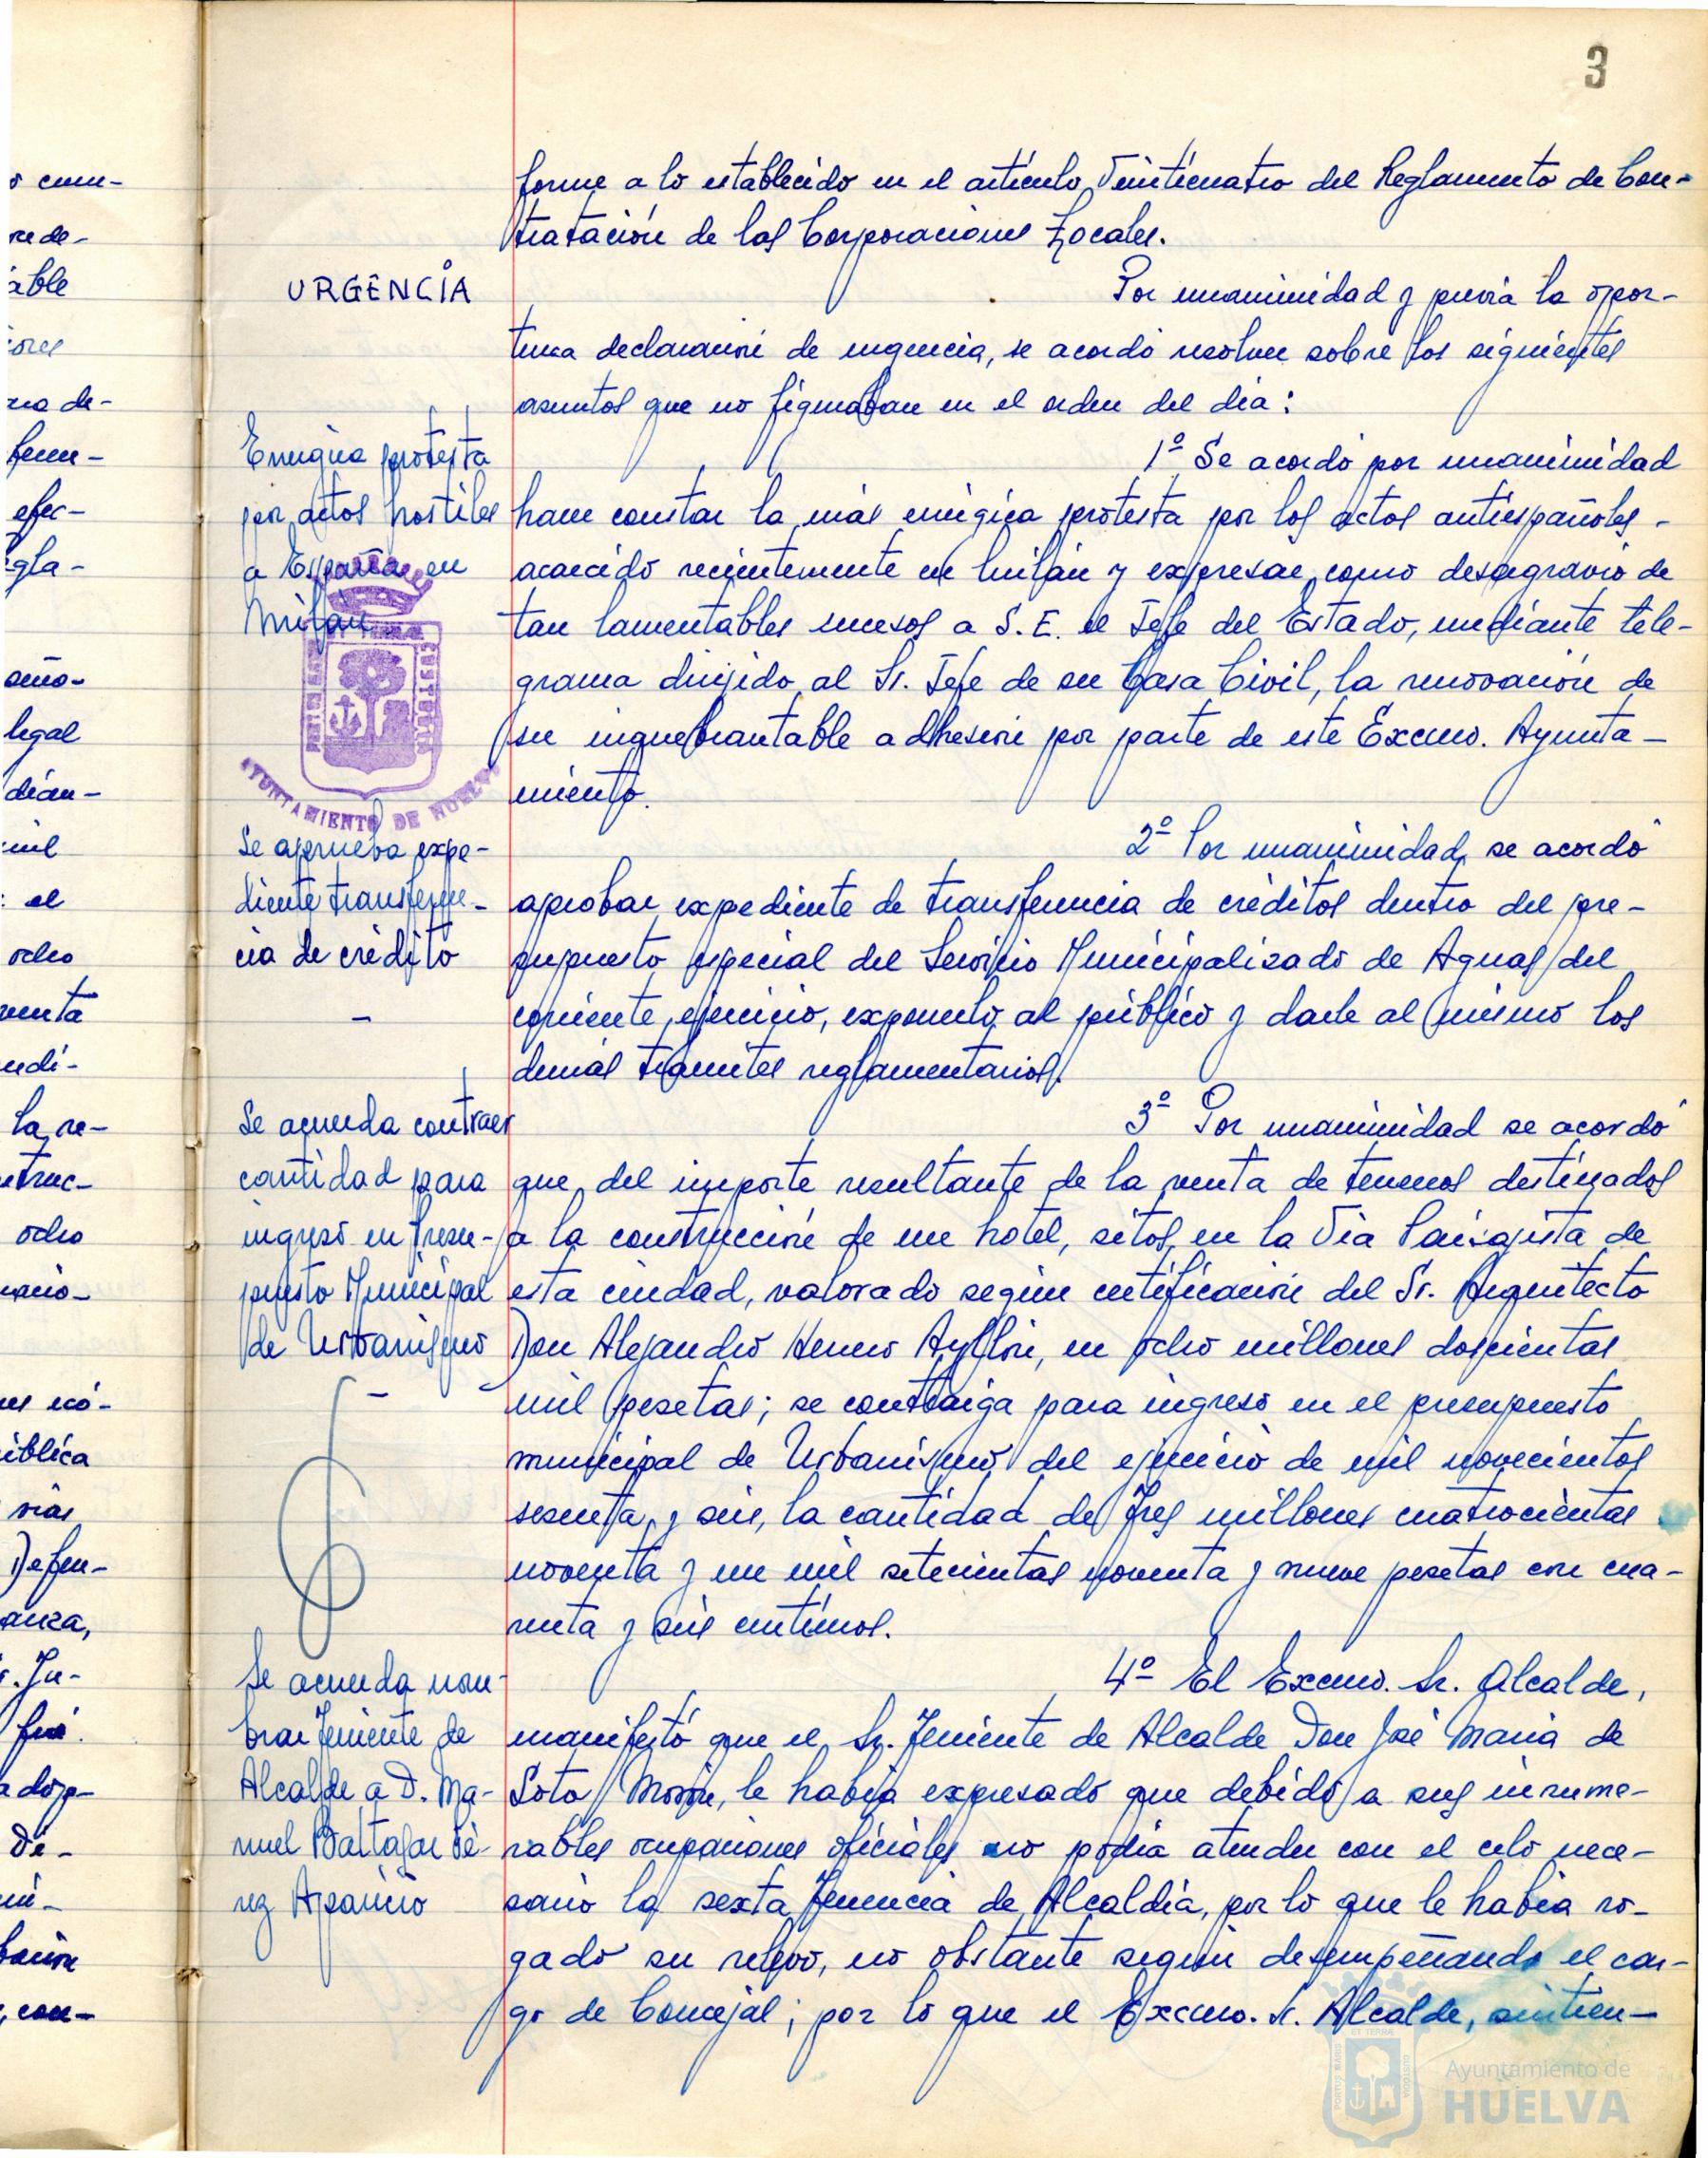 3
forme a lo establecido en el artículo Veinticuatro del Reglamento de Con-
tratación de las Corporaciones Locales.
URGENCIA
Por unanimidad y previa la opor-
tuna declaración de urgencia, se acordó resolver sobre los siguientes
asuntos que no figuraban en el orden del día:
Enérgica protesta
por actos hostiles
a España en
Milán
1º Se acordó por unanimidad
hacer constar la más enérgica protesta por los actos antiespañoles-
acaecido recientemente en Milán y expresar, como desagravio de
tan lamentables sucesos a S.E. el Jefe del Estado, mediante tele-
grama dirigido al Sr. Jefe de su Casa Civil, la renovación de
su inquebrantable adhesión por parte de este Excmo. Ayunta-
miento.
AYUNTAMIENTO DE HUELVA
Se aprueba expe-
diente transferen-
cia de crédito
-
2º Por unanimidad, se acordó
aprobar expediente de transferencia de créditos dentro del pre-
supuesto especial del Servicio Municipalizado de Aguas del
corriente ejercicio, exponerlo al público y darle al mismo los
demás trámites reglamentarios.
Se acuerda contraer
cantidad para
ingreso en Presu-
puesto Municipal
de Urbanismo
-
3º Por unanimidad se acordó
que del importe resultante de la venta de terrenos destinados
a la construcción de un hotel, sitos en la Vía Paisajista de
esta ciudad, valorado según certificación del Sr. Arquitecto
Don Alejandro Herrero Ayllón, en ocho millones doscientas
mil pesetas; se contraiga para ingreso en el presupuesto
municipal de Urbanismo del ejercicio de mil novecientos
sesenta y seis, la cantidad de tres millones cuatrocientas
noventa y un mil setecientas noventa y nueve pesetas con cua-
renta y seis céntimos.
Se acuerda nom-
brar Teniente de
Alcalde a D. Ma-
nuel Baltasar Pé-
rez Aparicio
4º El Excmo. Sr. Alcalde,
manifestó que el Sr. Teniente de Alcalde Don José María de
Soto Morón, le había expresado que debido a sus innume-
rables ocupaciones oficiales no podía atender con el celo nece-
sario la sexta Tenencia de Alcaldía, por lo que le había ro-
gado su relevo, no obstante seguir desempeñando el car-
go de Concejal; por lo que el Excmo. Sr. Alcalde, sintien-
Ayuntamiento de
HUELVA